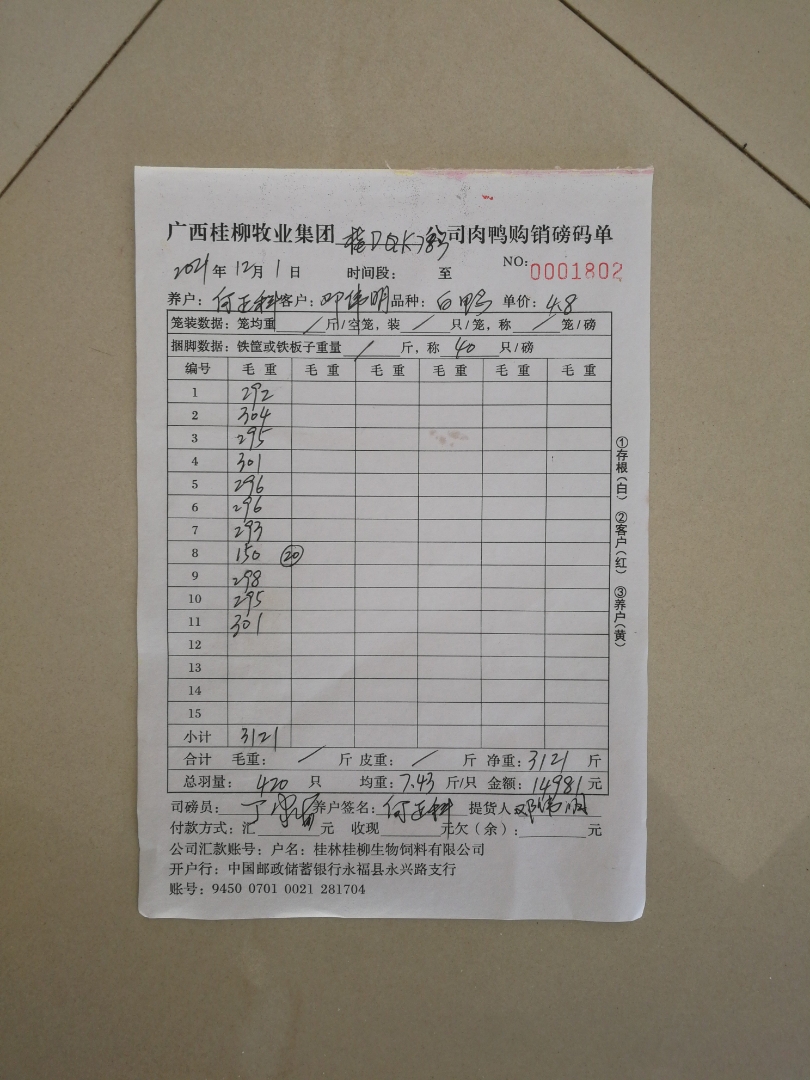 广西桂柳牧业集团 桂DQK783 公司肉鸭购销磅码单
2021年12月1日 时间段: 至 NO:0001802
养户:何正科 客户:邓伟明 品种:白鸭 单价:4.8
笼装数据:笼均重/斤/空笼,装/只/笼,称/笼/磅
捆脚数据:铁筐或铁板子重量/斤,称40只/磅
编号 毛重 毛重 毛重 毛重 毛重 毛重
1 292
2 304
3 295
4 301
5 296
6 296
7 293
8 150 ⑳
9 298
10 295
11 301
12
13
14
15
小计 3121
合计 毛重:/斤 皮重:/斤 净重:3121斤
总羽量:420只 均重:7.43斤/只 金额:14981元
司磅员:丁 养户签名:何正科 提货人:邓伟明
付款方式:汇 元 收现 元欠(余): 元
公司汇款账号:户名:桂林桂柳生物饲料有限公司
开户行:中国邮政储蓄银行永福县永兴路支行
账号:9450 0701 0021 281704
①存根(白) ②客户(红) ③养户(黄)